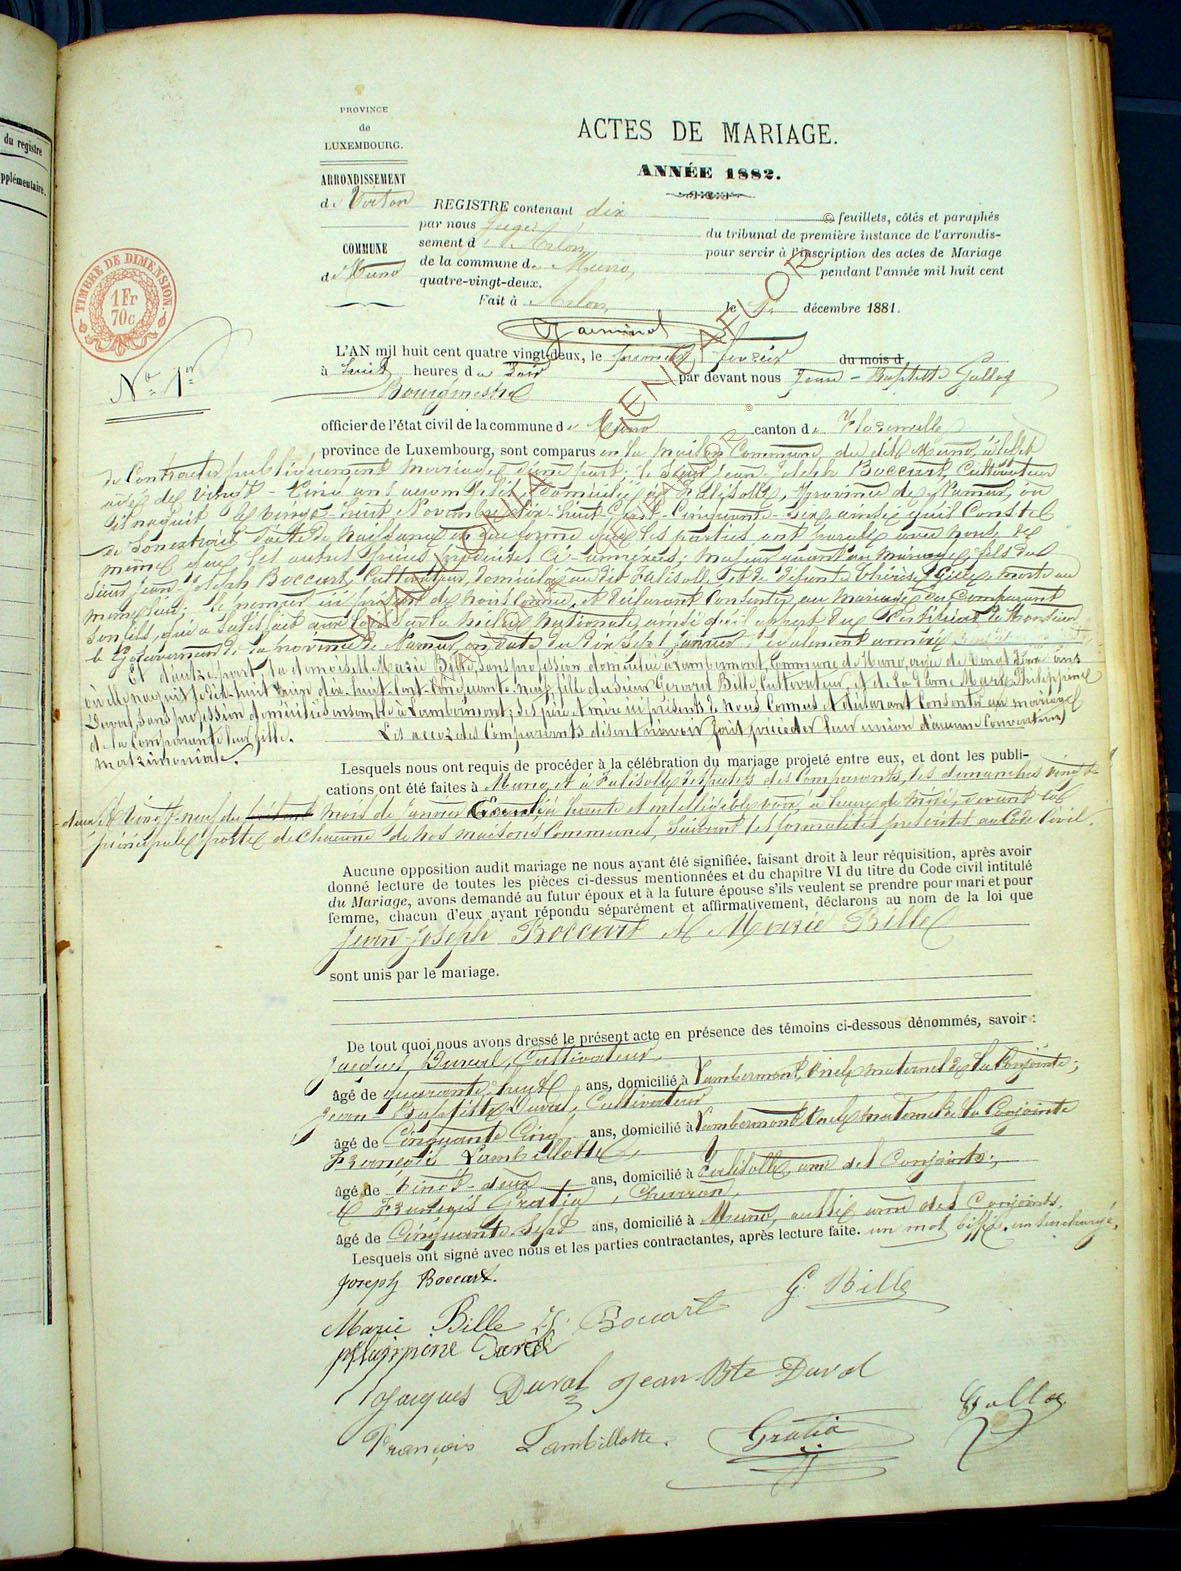 du registre
pplémentaire.
PROVINCE
de
LUXEMBOURG.
ARRONDISSEMENT
de Virton
COMMUNE
de Muno
TIMBRE DE DIMENSION
1 Fr
70c
No 1er
ACTES DE MARIAGE.
ANNÉE 1882.
REGISTRE contenant dix feuillets, côtés et paraphés
par nous Juge du tribunal de première instance de l'arrondis-
sement d'Arlon, pour servir à l'inscription des actes de Mariage
de la commune de Muno, pendant l'année mil huit cent
quatre-vingt-deux.
Fait à Arlon, le décembre 1881.
L'AN mil huit cent quatre vingt-deux, le premier février du mois d
à huit heures du soir par devant nous Jean-Baptiste
Bourgmestre
officier de l'état civil de la commune de Muno canton de Florenville
province de Luxembourg, sont comparus en la maison Commune du dit Muno, à l'effet
de Contracter publiquement mariage, d'une part: le Sieur Jean-Joseph Boccart, Cultivateur
âgé de vingt-cinq ans accomplis, domicilié à Falisolle, province de Namur, où
il naquit le vingt-huit Novembre dix-huit-Cent-Cinquante-six, ainsi qu'il Conste
de son extrait d'acte de naissance en due forme que les parties ont paraphé avec nous, de
même que les autres pièces produites Ci-annexées; majeur quant au mariage, fils du
Sieur Jean Joseph Boccart, Cultivateur, domicilié au dit Falisolle et de défunte Thérèse morte au
même lieu; le premier ici présent de nous Connu, et déclarant Consentir au mariage du Comparant
son fils, qui a satisfait aux lois sur la milice Nationale, ainsi qu'il appert du Certificat de Monsieur
le Gouverneur de la province de Namur, en date du dix sept janvier également annexé
Et d'autre part, la demoiselle Marie Bille, sans profession, domiciliée à Lambermont, Commune de Muno, âgée de vingt deux ans
où elle naquit le dix-huit Juin dix-huit-Cent-Cinquante-neuf, fille du Sieur Gérard Bille, Cultivateur, et de la Dame Marie Philippine
Duval, sans profession, domiciliés ensemble à Lambermont; ses père et mère ici présents de nous Connus et déclarant Consentir au mariage
de la Comparante leur fille. Les accordés Comparants disent n'avoir fait précéder leur union d'aucune Convention
matrimoniale.
Lesquels nous ont requis de procéder à la célébration du mariage projeté entre eux, et dont les publi-
cations ont été faites à Muno, et à Falisolle respectifs des Comparants, les dimanches vingt-
deux et vingt-neuf du mois de Janvier à haute et intelligible voix, à heure de midi, devant les
principales portes de chacune de nos maisons Communes, suivant les formalités prescrites au Code Civil.
Aucune opposition audit mariage ne nous ayant été signifiée, faisant droit à leur réquisition, après avoir
donné lecture de toutes les pièces ci-dessus mentionnées et du chapitre VI du titre du Code civil intitulé
du Mariage, avons demandé au futur époux et à la future épouse s'ils veulent se prendre pour mari et pour
femme, chacun d'eux ayant répondu séparément et affirmativement, déclarons au nom de la loi que
Jean-Joseph Boccart et Marie Bille
sont unis par le mariage.
De tout quoi nous avons dressé le présent acte en présence des témoins ci-dessous dénommés, savoir :
Jacques Duval, Cultivateur
âgé de quarante-huit ans, domicilié à Lambermont, oncle maternel de la Conjointe;
Jean-Baptiste Duval, Cultivateur
âgé de Cinquante Cinq ans, domicilié à Lambermont, oncle maternel de la Conjointe
François Lambillotte,
âgé de vingt-deux ans, domicilié à Falisolle, ami des Conjoints;
& François Gratia,
âgé de Cinquante-Sept ans, domicilié à Muno, aussi ami des Conjoints.
Lesquels ont signé avec nous et les parties contractantes, après lecture faite. un mot biffé, un surchargé,
Joseph Boccart.
Marie Bille J. Boccart G. Bille
philippine Duval
Jacques Duval Jean-Bte Duval
François Lambillotte. Gratia
WALLONIA GENEAFLOR